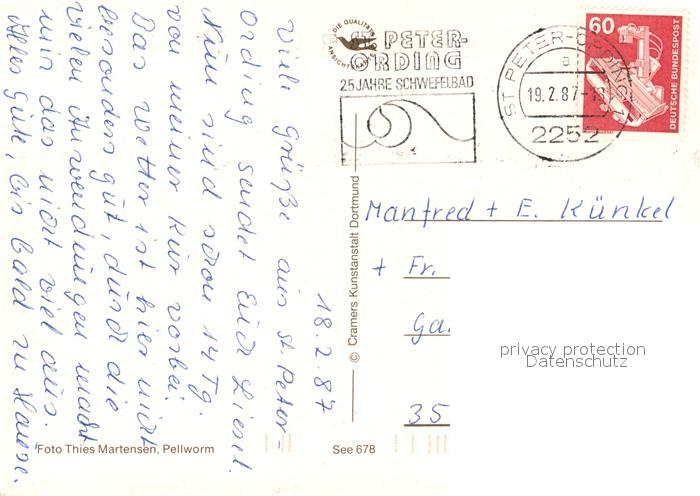 18.2.87
Viele Grüße aus St. Peter-
Ording sendet Euch Liesel.
Nun sind schon 14 Tg.
von meiner Kur vorbei.
Das Wetter ist hier nicht
besonders gut, durch die
vielen Anwendungen macht
mir das nicht viel aus.
Alles Gute, bis bald zu Hause.
DIE QUALITÄTS
ANSICHTSKARTE
ST. PETER-
ORDING
25 JAHRE SCHWEFELBAD
ST PETER-ORDING 1
a
19.2.87-
2252
60
DEUTSCHE BUNDESPOST
Manfred + E. Künkel
+ Fr.
Ga.
35
privacy protection
Datenschutz
© Cramers Kunstanstalt Dortmund
Foto Thies Martensen, Pellworm
See 678